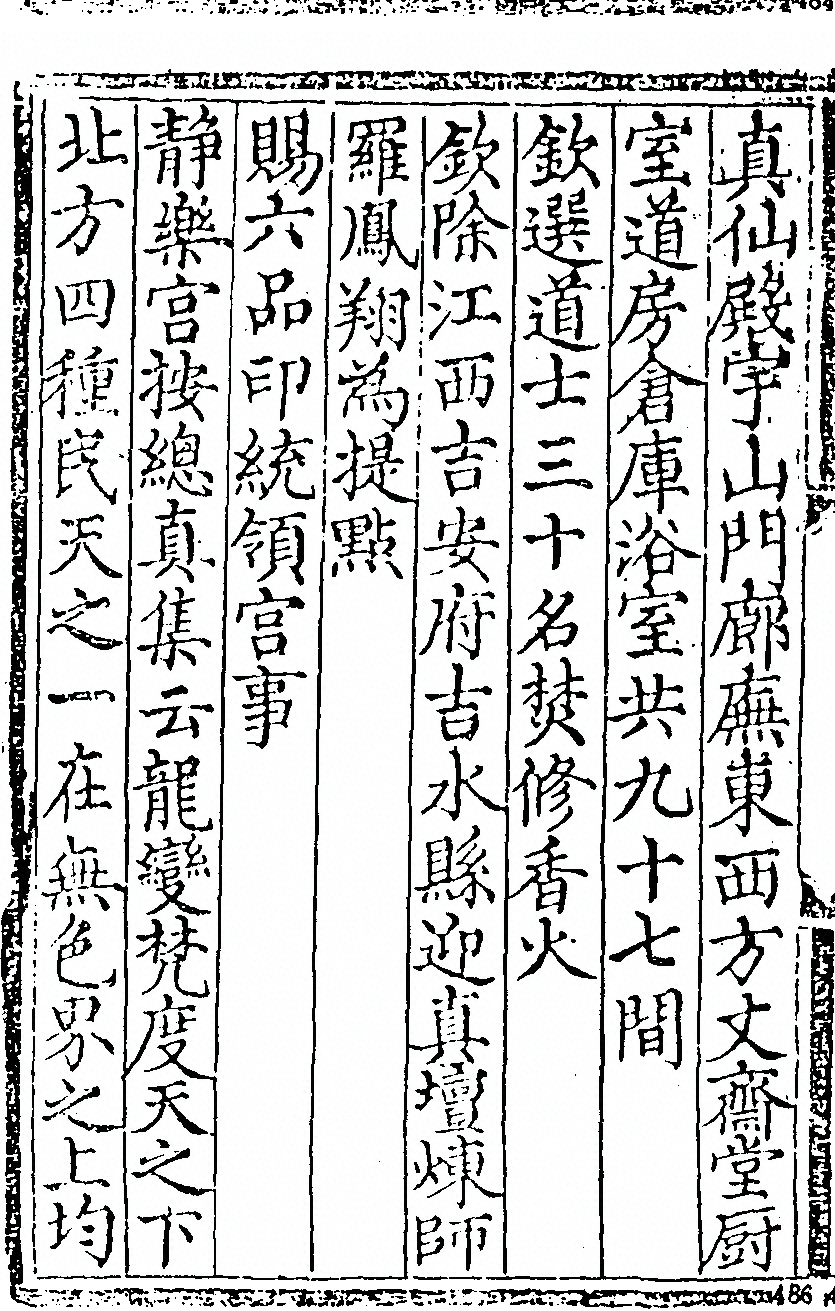 真仙殿宇山門廊廡東西方丈齋堂厨
室道房倉庫浴室共九十七間
欽選道士三十名焚修香火
欽除江西吉安府吉水縣迎真壇煉師
羅鳳翔為提點
賜六品印統領宫事
靜樂宫按總真集云龍變梵度天之下
北方四種民天之一在無色界之上均
486